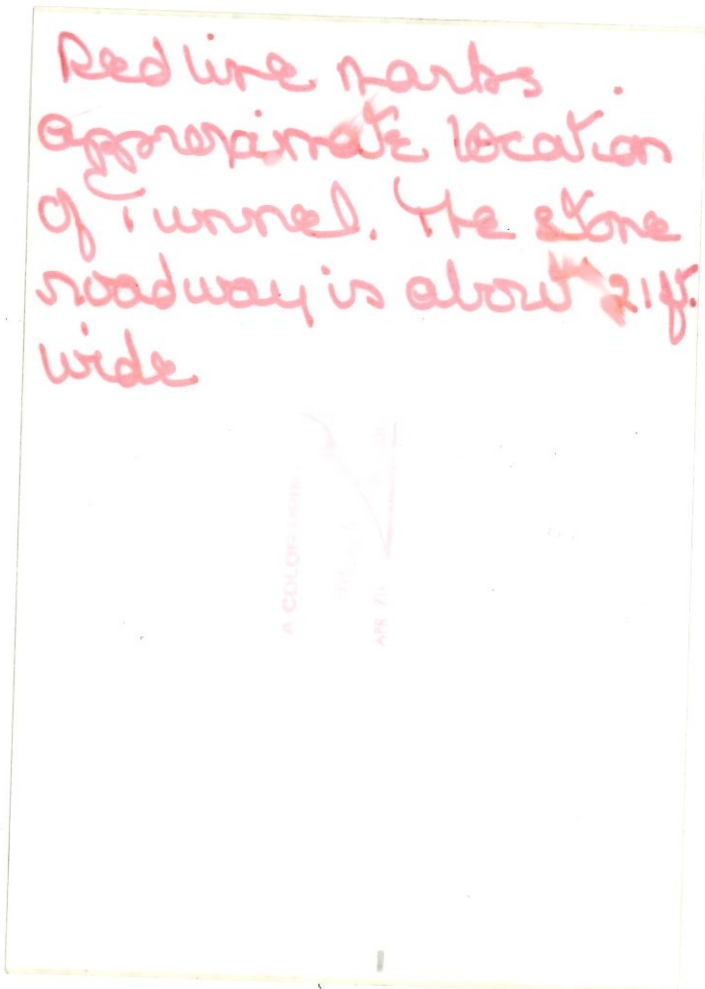 Red line marks
approximate location
of Tunnel. The stone
roadway is about 21 ft.
wide
A COLOR
APR 76